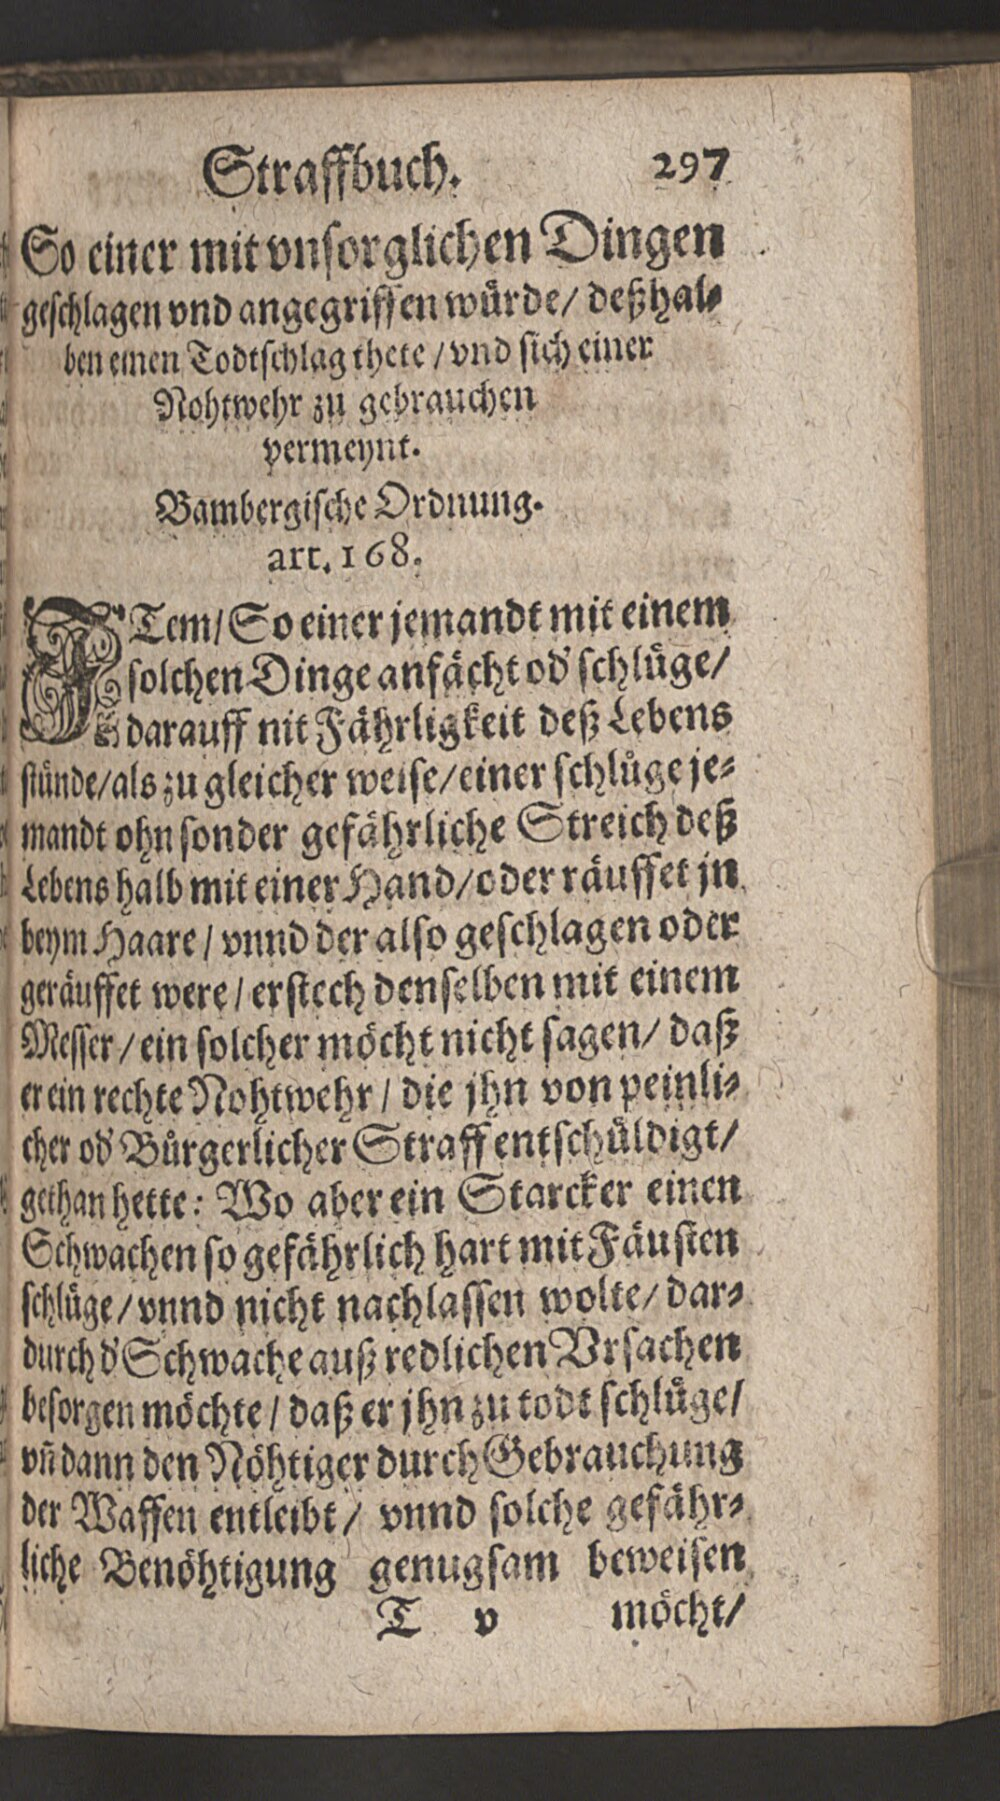 Straffbuch. 297
So einer mit vnsorglichen Dingen
geschlagen vnd angegriffen würde/ deßhal-
ben einen Todtschlag thete / vnd sich einer
Nohtwehr zu gebrauchen
vermeynt.
Bambergische Ordnung.
art. 168.
ITem/ So einer jemandt mit einem
solchen Dinge anfächt od' schlüge/
darauff nit Fährligkeit deß Lebens
stünde/ als zu gleicher weise/ einer schlüge je-
mandt ohn sonder gefährliche Streich deß
Lebens halb mit einer Hand/ oder räuffet jn
beym Haare / vnnd der also geschlagen oder
geräuffet were / erstech denselben mit einem
Messer / ein solcher möcht nicht sagen/ daß
er ein rechte Nohtwehr / die jhn von peinli-
cher od' Bürgerlicher Straff entschüldigt/
gethan hette: Wo aber ein Starcker einen
Schwachen so gefährlich hart mit Fäusten
schlüge/ vnnd nicht nachlassen wolte/ dar-
durch d' Schwache auß redlichen Vrsachen
besorgen möchte / daß er jhn zu todt schlüge/
vñ dann den Nöhtiger durch Gebrauchung
der Waffen entleibt / vnnd solche gefähr-
liche Benöhtigung genugsam beweisen
T v möcht/